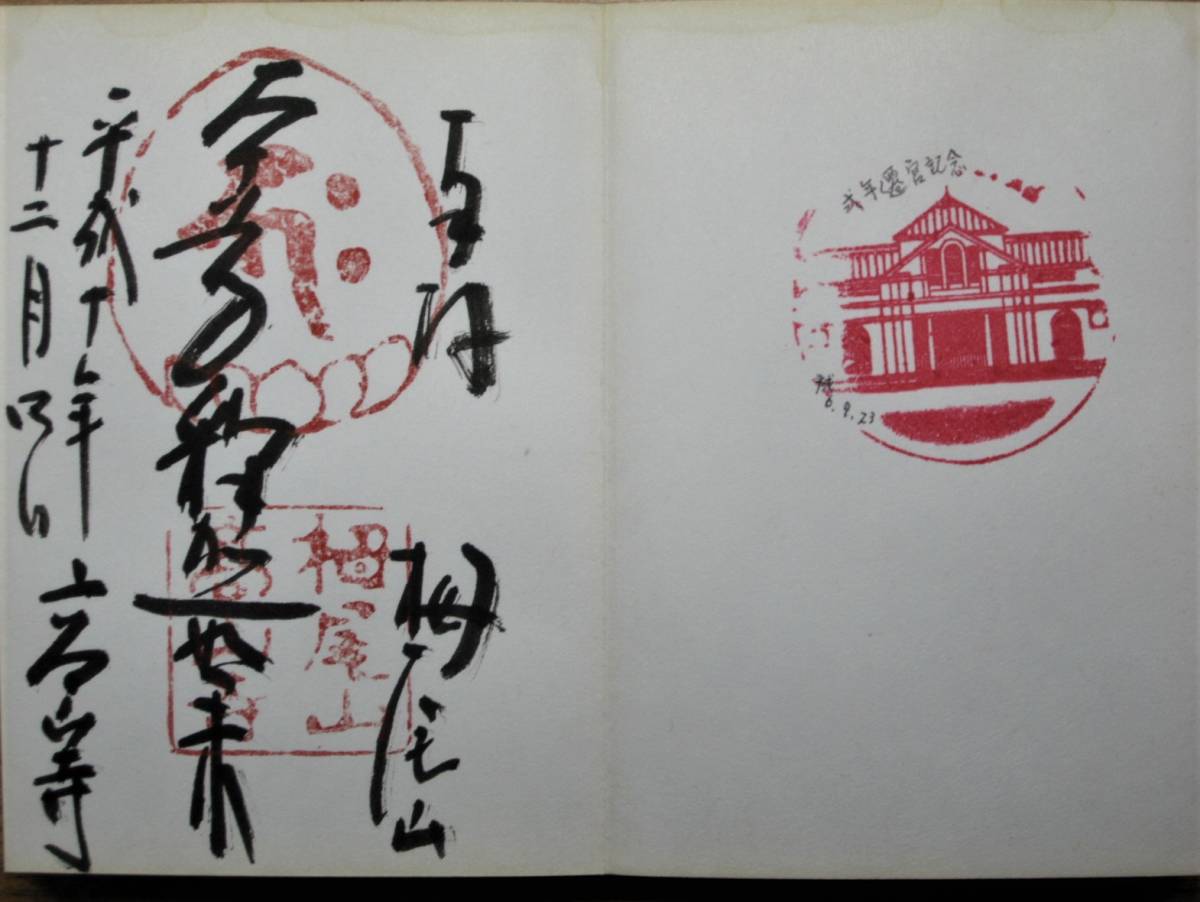 式年遷宮記念
6.9.23
栂尾山
釋迦如来
平成十年
十二月四日
高山寺
栂尾山